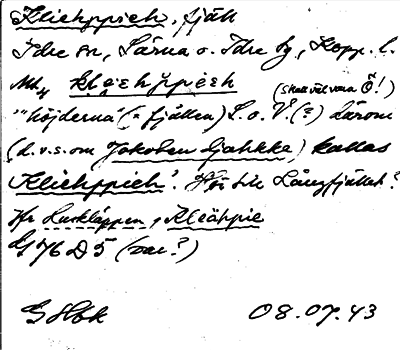 Kliehppieh, fjäll
Idre sn, Särna o. Idre tg, Kopp. l.
klẹehppẹẹh (skall väl vara Ö!)
"'höjderna' (= fjällen) S. o. V. (?) härom
(d.v.s. om Jakoben Tjahkke) kallas
Kliehppieh". Hör till Långfjället?
Jfr Luskläppen, Kleäppie
76 D 5 (var?)
G Hbk 08.07.43